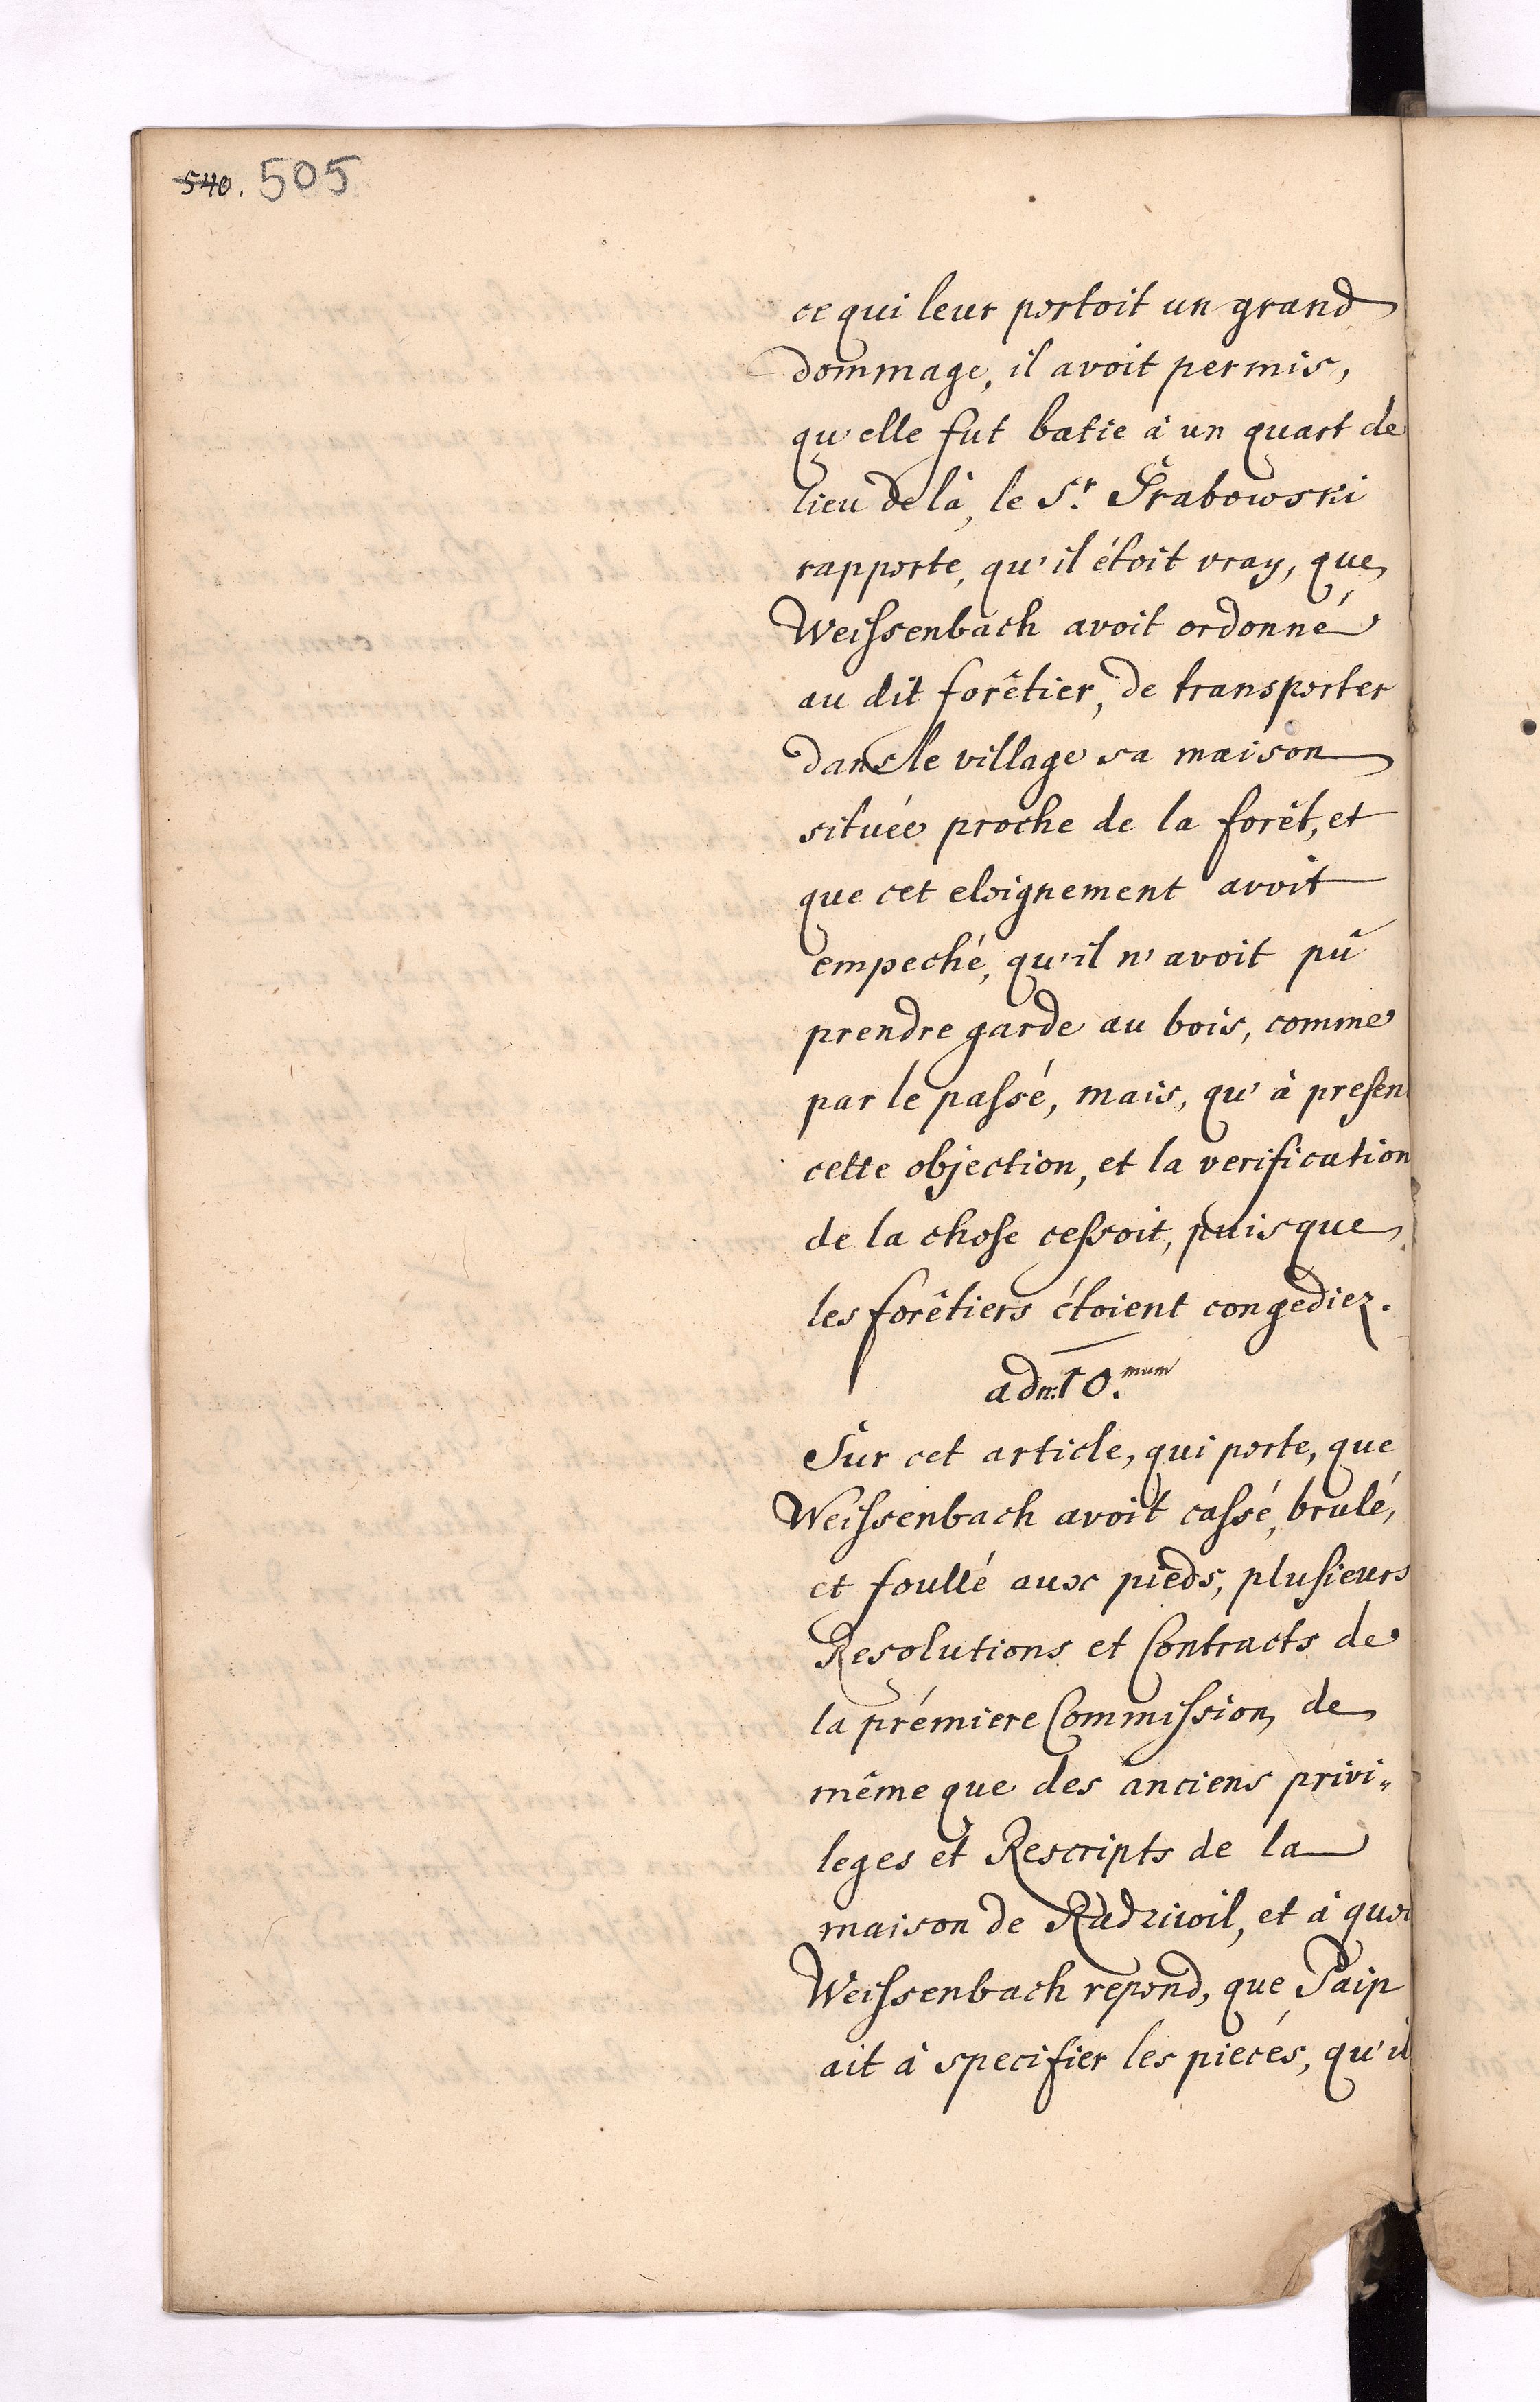 540. 505
ce qui leur portoit un grand
dommage, il avoit permis,
qu'elle fut batie à un quart de
lieu de là, le Sr. Grabowski
rapporte, qu'il étoit vray, que
Weissenbach avoit ordonné
au dit forêtier, de transporter
dans le village sa maison
située proche de la forêt, et
que cet eloignement avoit
empeché, qu'il n'avoit pû
prendre garde au bois, comme
par le passé, mais, qu'à presen
cette objection, et la verification
de la chose cessoit, puisque
les forêtiers étoient congediez.
ad n: 10.mum
Sur cet article, qui porte, que
Weissenbach avoit cassé, brulé,
et foullé aux pieds, plusieurs
Resolutions et Contracts de
la prémiere Commission, de
même que des anciens privi„
leges et Rescripts de la
maison de Radziwil, et à quoi
Weissenbach repond, que Paip
ait à specifier les pieces, qu'il